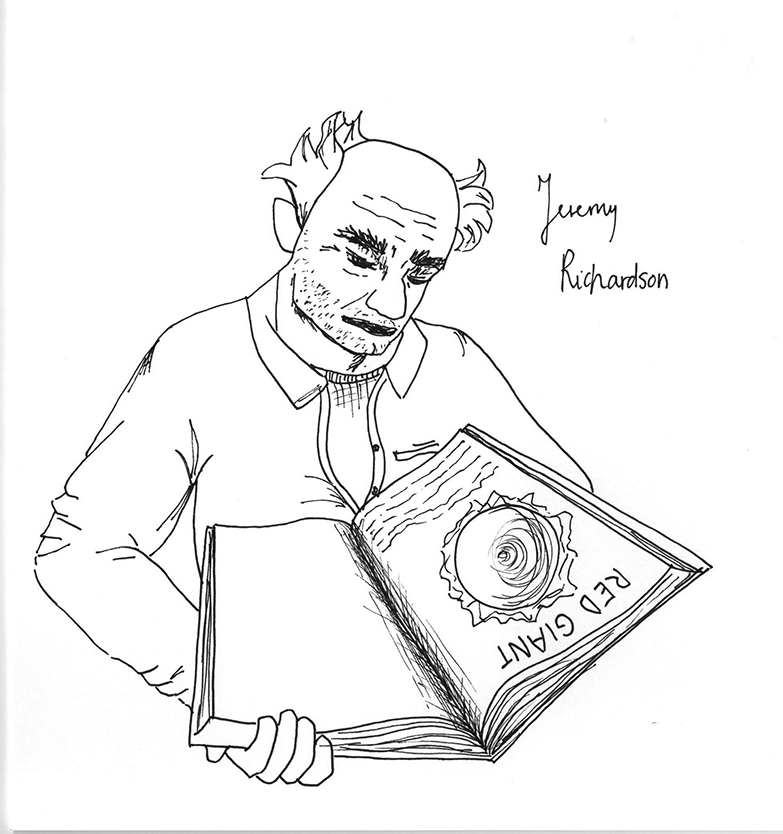 Jeremy
Richardson
RED GIANT